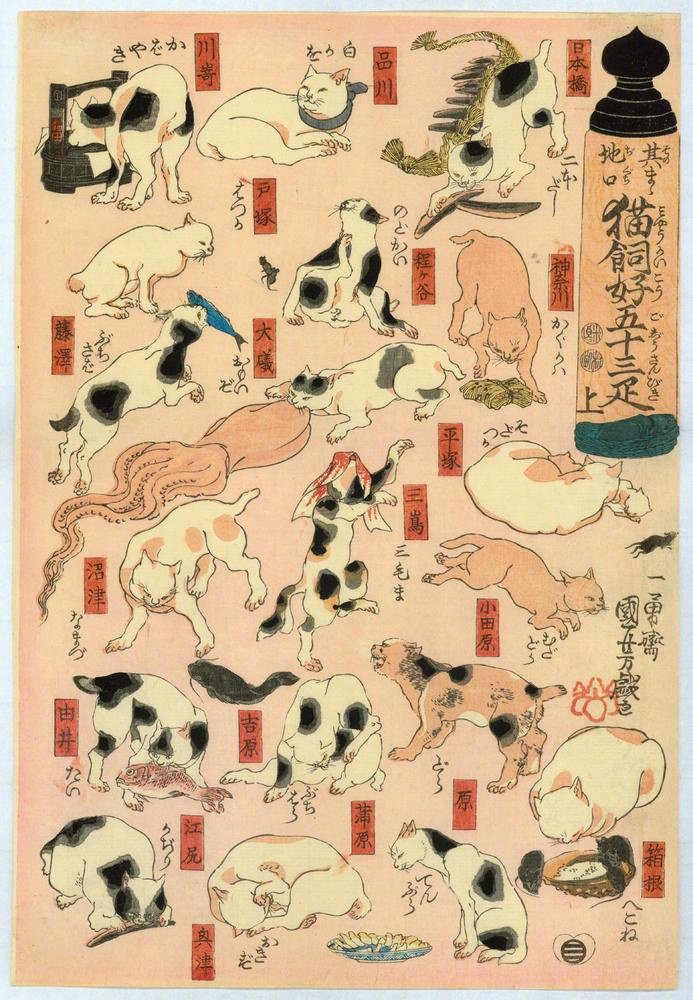 其まゝ
その
地口
ぢぐち
猫飼好五十三疋
みやうかいこうごじうさんびき
上
日本橋
二本だし
品川
白かを
川嵜
かばやき
神奈川
かぐかハ
程ヶ谷
のどかい
戸塚
はつか
藤澤
ぶちさば
平塚
そだつか
大礒
おもいぞ
小田原
むだどら
箱根
へこね
三嶌
三毛ま
沼津
なまづ
原
どら
吉原
ぶちはら
蒲原
てんぷら
由井
たい
奥津
おきず
江尻
かぢり
一勇齋
國芳戯画